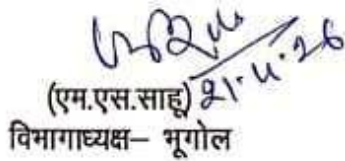 (एम.एस.साहू) 21.4.26
विभागाध्यक्ष– भूगोल